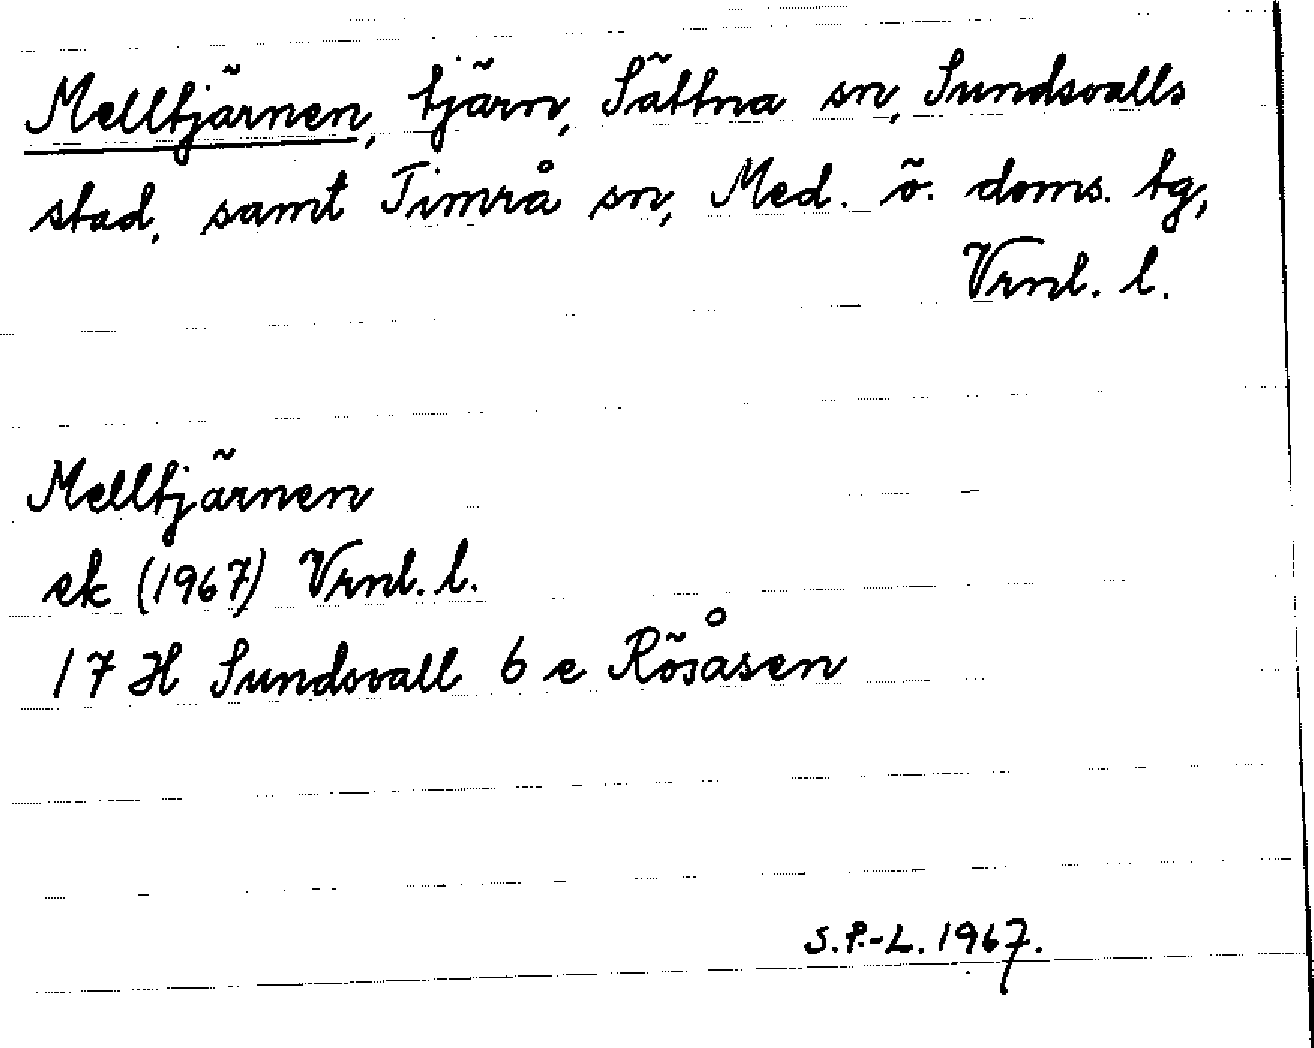 Melltjärnen, tjärn, Sättna sn, Sundsvalls
stad, samt Timrå sn, Med. ö. doms. tg,
Vrnl. l.
Melltjärnen
ek (1967) Vrnl. l.
17 H Sundsvall 6 e Rösåsen
S.P.-L. 1967.